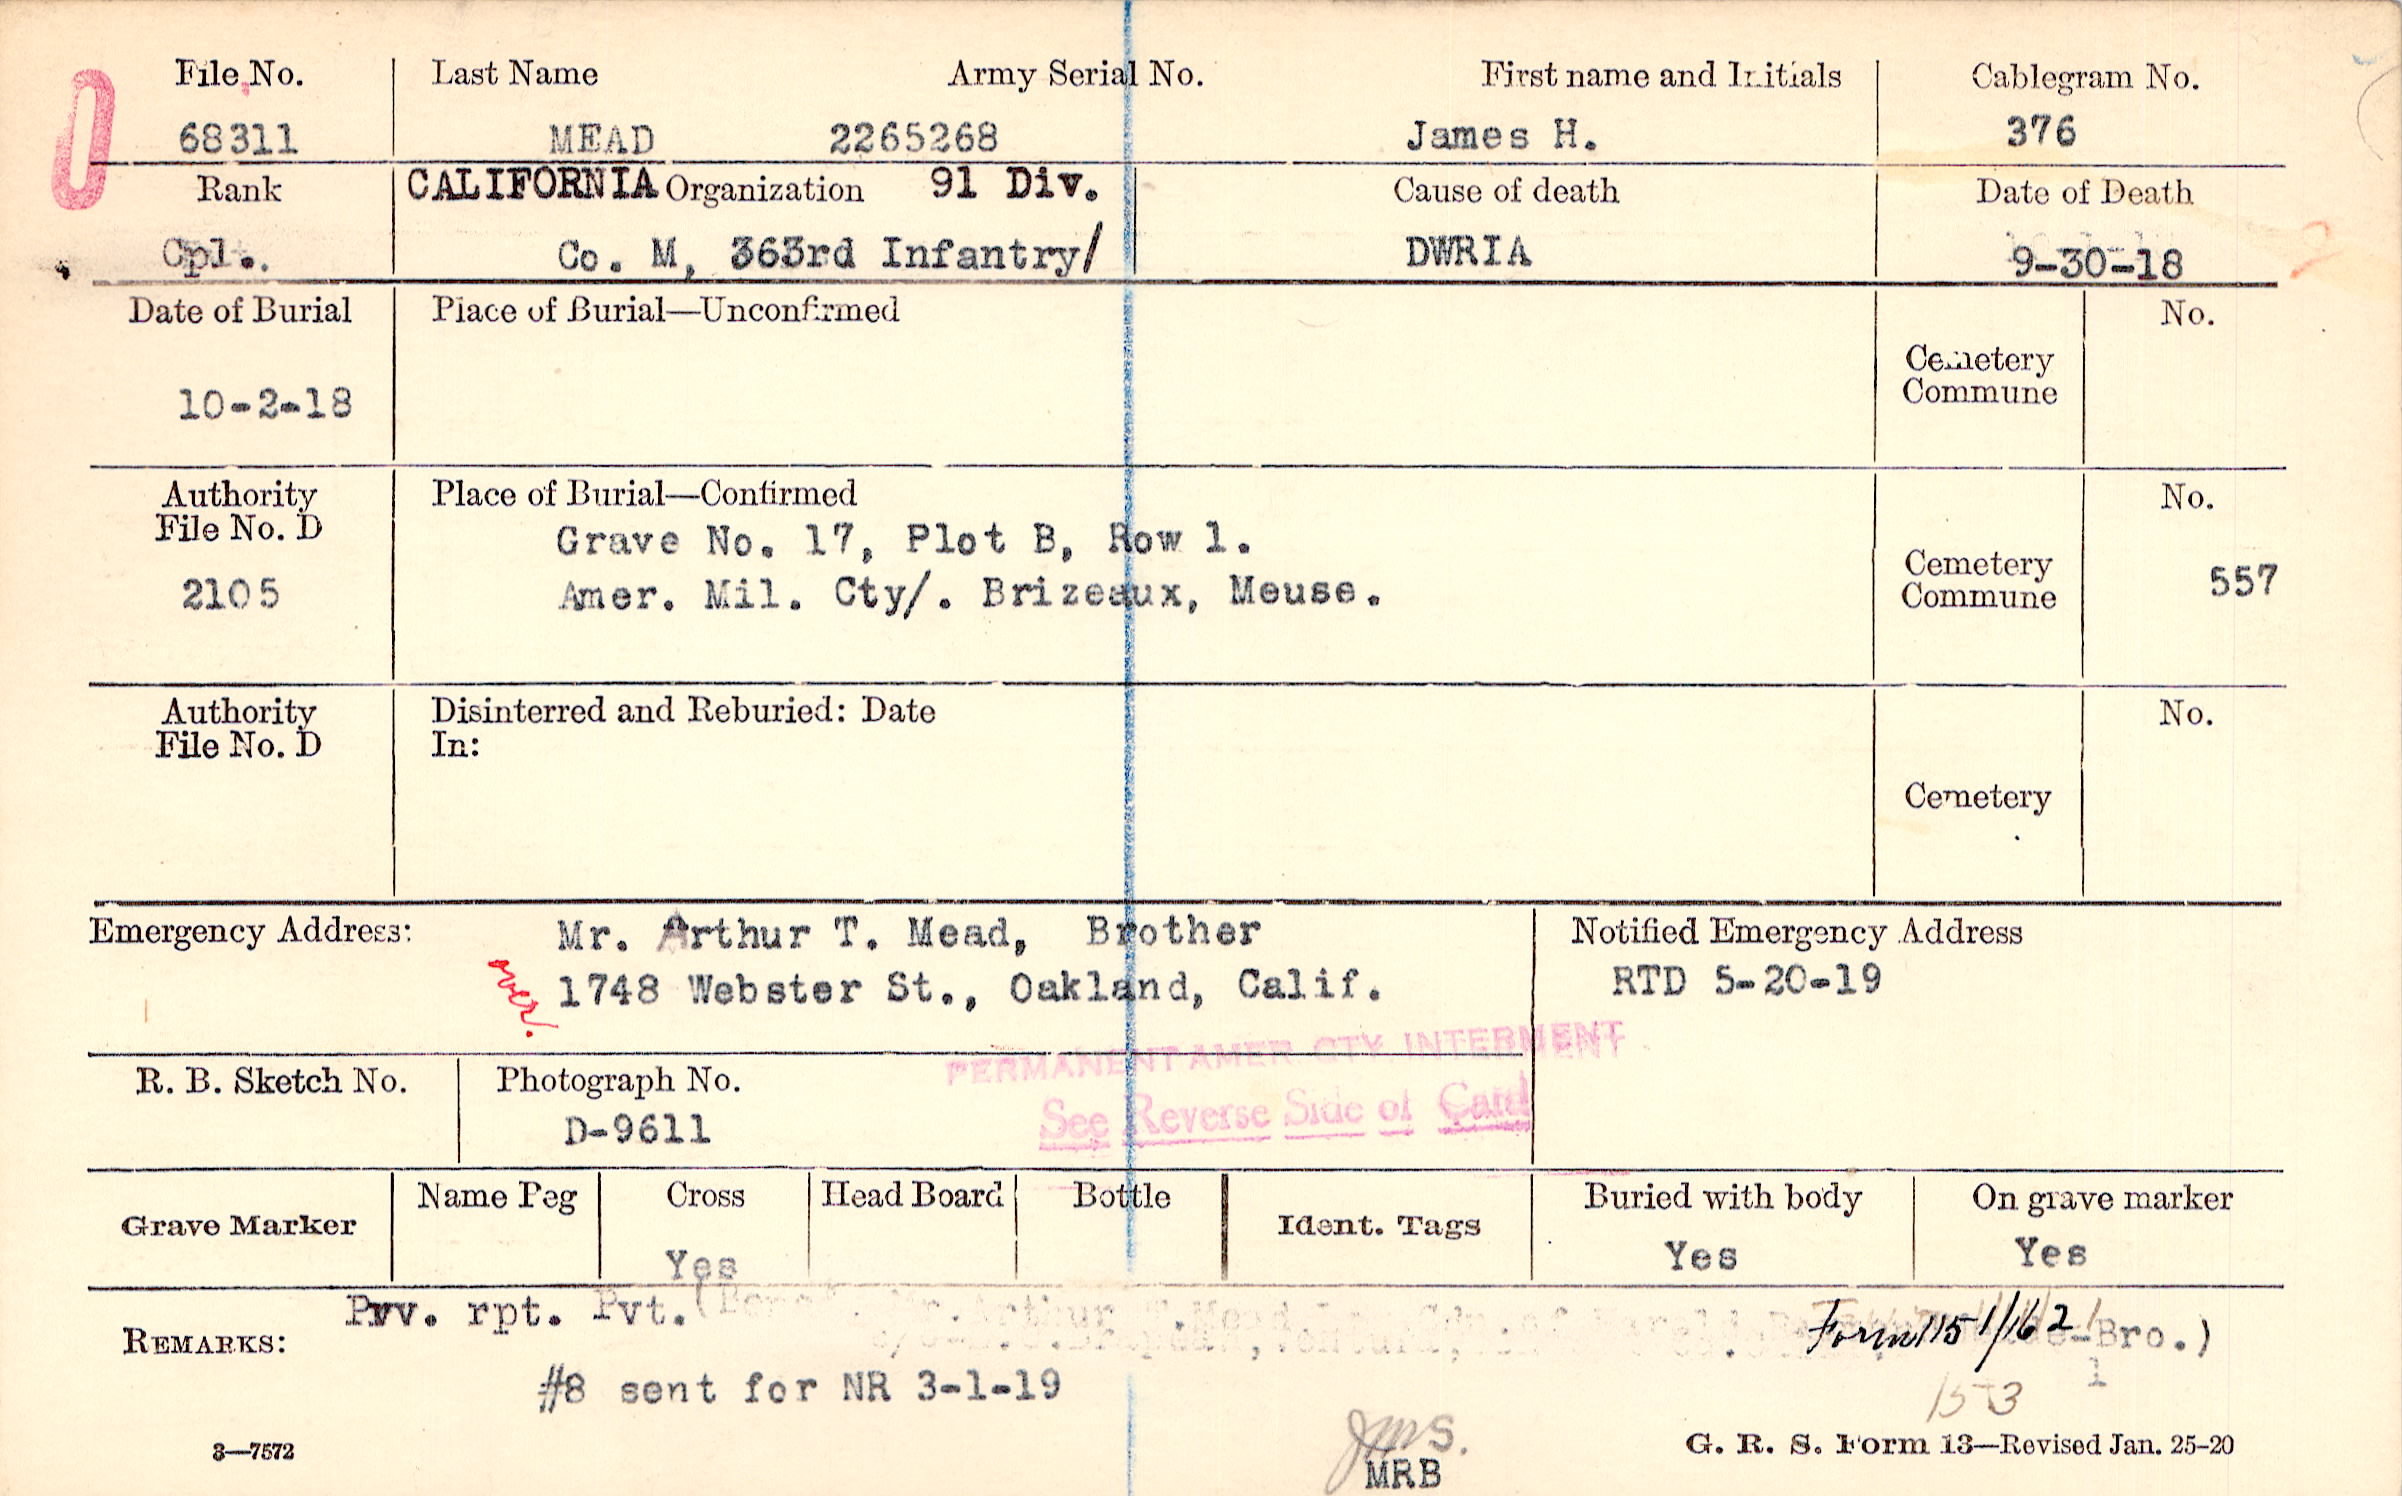 File No. Last Name Army Serial No. First name and Initials Cablegram No.
68311 MEAD 2265268 James H. 376
Rank CALIFORNIA Organization 91 Div. Cause of death Date of Death
Cpl. Co. M, 363rd Infantry/ DWRIA 9-30-18
Date of Burial Place of Burial—Unconfirmed No.
Cemetery
Commune
10-2-18
Authority Place of Burial—Confirmed No.
File No. D Grave No. 17, Plot B, Row 1.
2105 Amer. Mil. Cty/. Brizeaux, Meuse. Cemetery
Commune 557
Authority Disinterred and Reburied: Date No.
File No. D In:
Cemetery
Emergency Address: Mr. Arthur T. Mead, Brother Notified Emergency Address
over. 1748 Webster St., Oakland, Calif. RTD 5-20-19
PERMANENT AMER CTY INTERMENT
R. B. Sketch No. Photograph No.
See Reverse Side of Card
D-9611
Grave Marker Name Peg Cross Head Board Bottle Ident. Tags Buried with body On grave marker
Yes Yes Yes
REMARKS: Prv. rpt. Pvt. Mr. Arthur T. Mead
Form 115 1/16 21 Bro.)
#8 sent for NR 3-1-19
1
153
JMS.
MRB
3—7572 G. R. S. Form 13—Revised Jan. 25-20